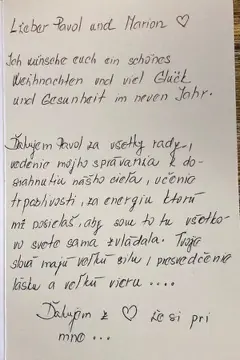 Lieber Pavol und Marion ♡
Ich wünsche euch ein schönes
Weihnachten und viel Glück
und Gesunheit im neuen Jahr.
Ďakujem Pavol za všetky rady,
vedenie mojho správania k do-
siahnutiu nášho cieľa, učenie
trpezlivosti, za energiu ktorú
mi posielaš, aby som to tu všetko
vo svete sama zvládala. Tvoje
slová majú veľkú silu, presvedčenie
lásku a veľkú vieru ....
Ďakujem z ♡ že si pri
mne ...